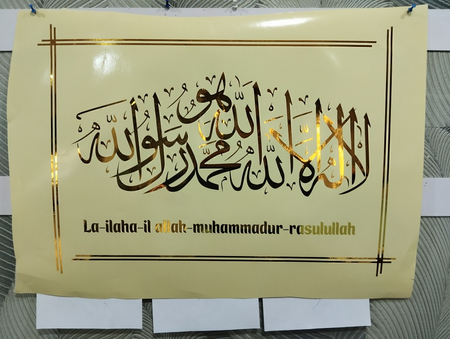 لا اله الا الله هو محمد رسول الله
La-ilaha-il allah-muhammadur-rasulullah